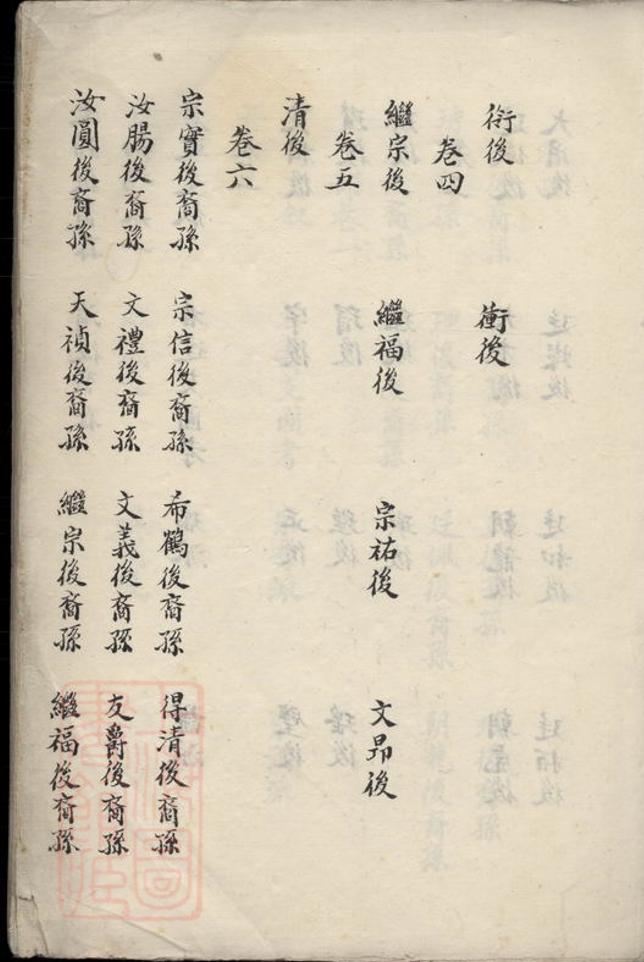 衍後 衝後
卷四
繼宗後 繼福後 宗祐後 文昂後
卷五
清後
卷六
宗實後裔孫 宗信後裔孫 希鶴後裔孫 得清後裔孫
汝腸後裔孫 文禮後裔孫 文義後裔孫 友爵後裔孫
汝圓後裔孫 天禎後裔孫 繼宗後裔孫 繼福後裔孫